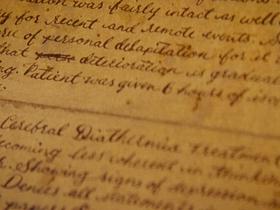 was fairly intact as well
for recent and remote events. N
of personal delapitation for it
that deterioration is gradual
Patient was given 6 hours of
Cerebral Diathermia Treatmen
becoming less coherent in thinkin
Showing signs of depression
Denies all statements
papers